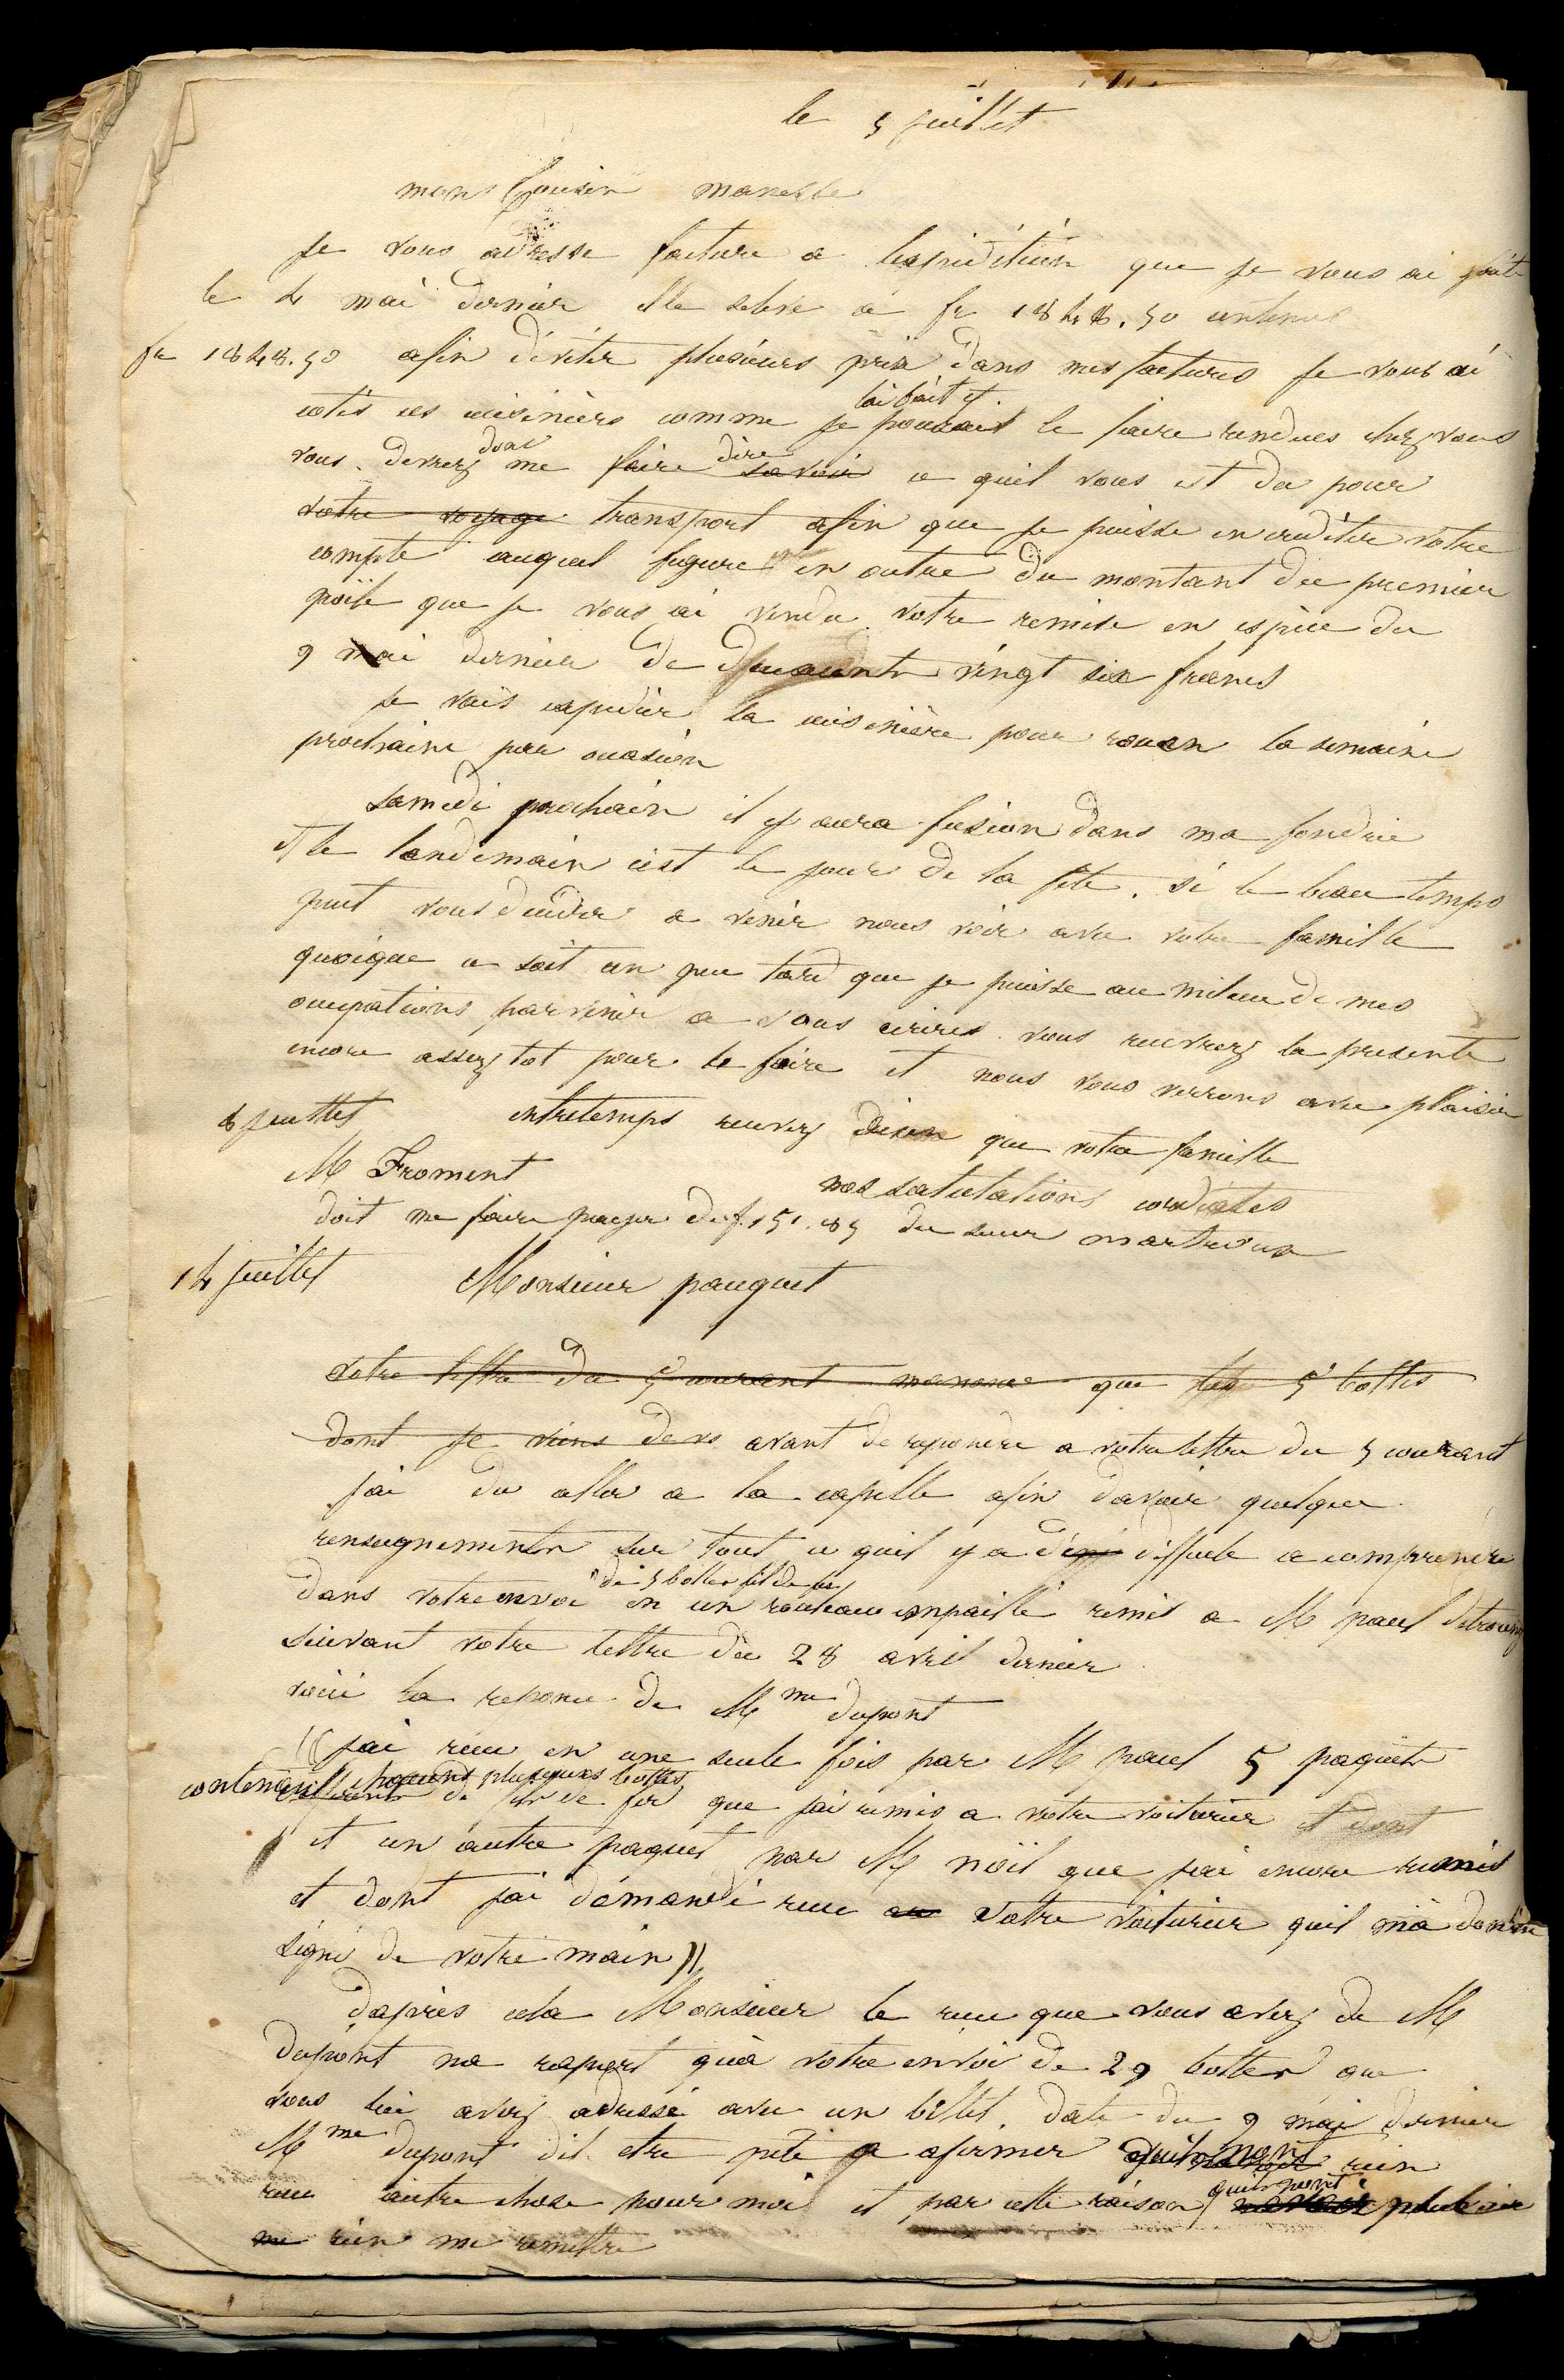 le 5 juillet
mons Cousin manesse
Je vous adresse facture a lexpédition que je vous ai faite
le 4 mai dernier elle seleve a fr 1848.50
fr 1848.50 afin déviter plusieurs prix dans mes factures je vous ai
cotés ces cuisinières comme je lai fait et pouvait le faire rendues chez vous
vous devrez donc me faire dire savoir ce quil vous est du pour
votre voyage transport afin que je puisse en créditer votre
compte auquel figure en outre du montant du premier
poële que je vous ai vendu votre remise en espèce du
9 mai dernier de vingt six francs
je vais expedier la cuisinière pour rouen la semaine
prochaine par ocasion
samedi prochain il y aura fusion dans ma fondrie
et le landemain cest le jour de la fête. si le beau temps
peut vous décider a venir nous voir avec votre famille
quoique ce soit un peu tard que je puisse au milieu de mes
occupations parvenir a vous ecrire. vous recevrez la presente
encore assez tot pour le faire et nous vous verrons avec plaisir
entretemps recevez que votre famille
nos salutations cordiales
8 juillet
M Froment
doit me faire payer de f. 151.85 du sieur martru
14 juillet Monsieur pauquet
votre lettre du 5 courant manonce que les 5 bottes
dont je viens de vs avant de reponere a votre lettre du 5 courant
jai du aller a la capelle afin davoir quelque
renseignements sur tout ce quil y a de dificile a comprendre
dans votre envoi de 5 bottes fil de fer en un rouleau empaillé remis a M paul
suivant votre lettre du 28 avril dernier
voici la reponce de Mme dupont
(( jai recu en une seule fois par M paul 5 paquets
contenant chacuns plusieurs bottes de fils de fer que jai remis a votre voiturier et dont
et un autre paquet par M noël que jai encore remis
et dont jai démandé recu au votre voiturier quil mà donné
signé de votre main ))
daprès cela Monsieur le recu que vous avez de M
dupont na raport quà votre envoi de 29 bottes que
vous lui avez adressé avec un billet. daté du 9 mai dernier
Mme dupont dit etre prete a afirmer quils nont rien
recu autre chose pour moi et par cette raison quils nont
me rien me remettre